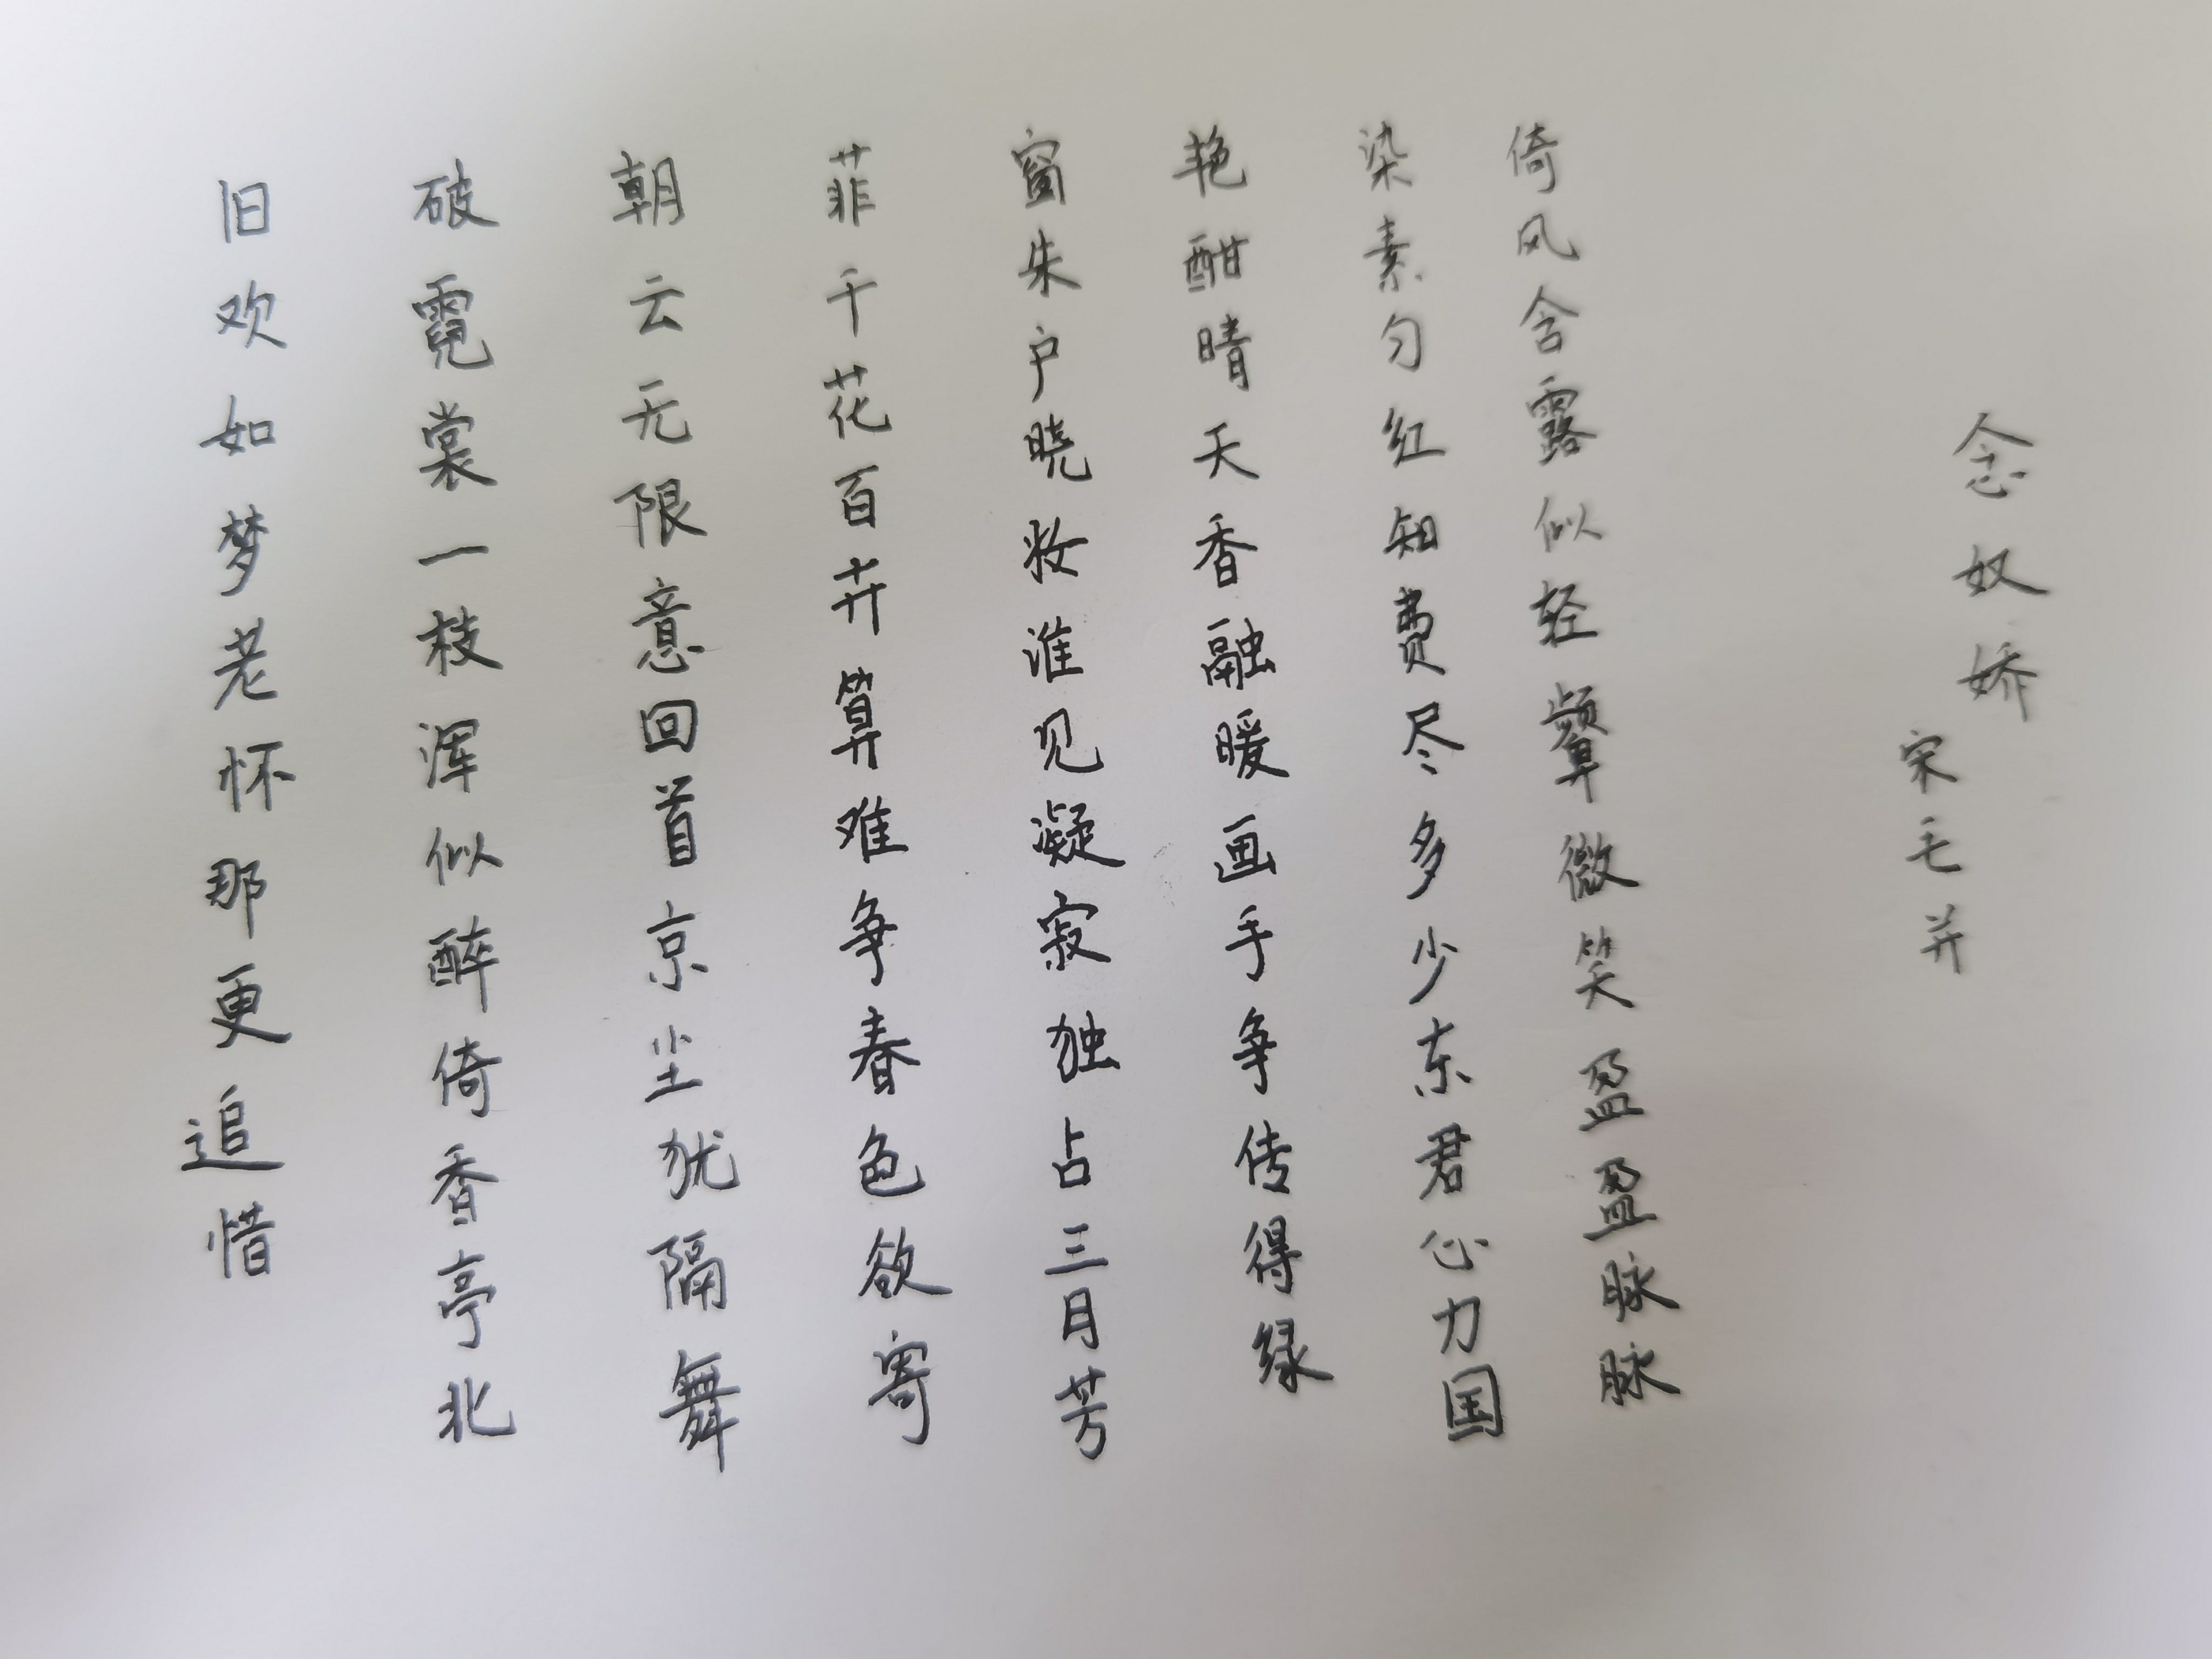 念奴娇
宋毛并
倚风含露似轻颦微笑盈盈脉脉
染素匀红知费尽多少东君心力国
艳酣晴天香融暖画手争传得绿
窗朱户晓妆谁见凝寂独占三月芳
菲千花百卉算难争春色欲寄
朝云无限意回首京尘犹隔舞
破霓裳一枝浑似醉倚香亭北
旧欢如梦老怀那更追惜